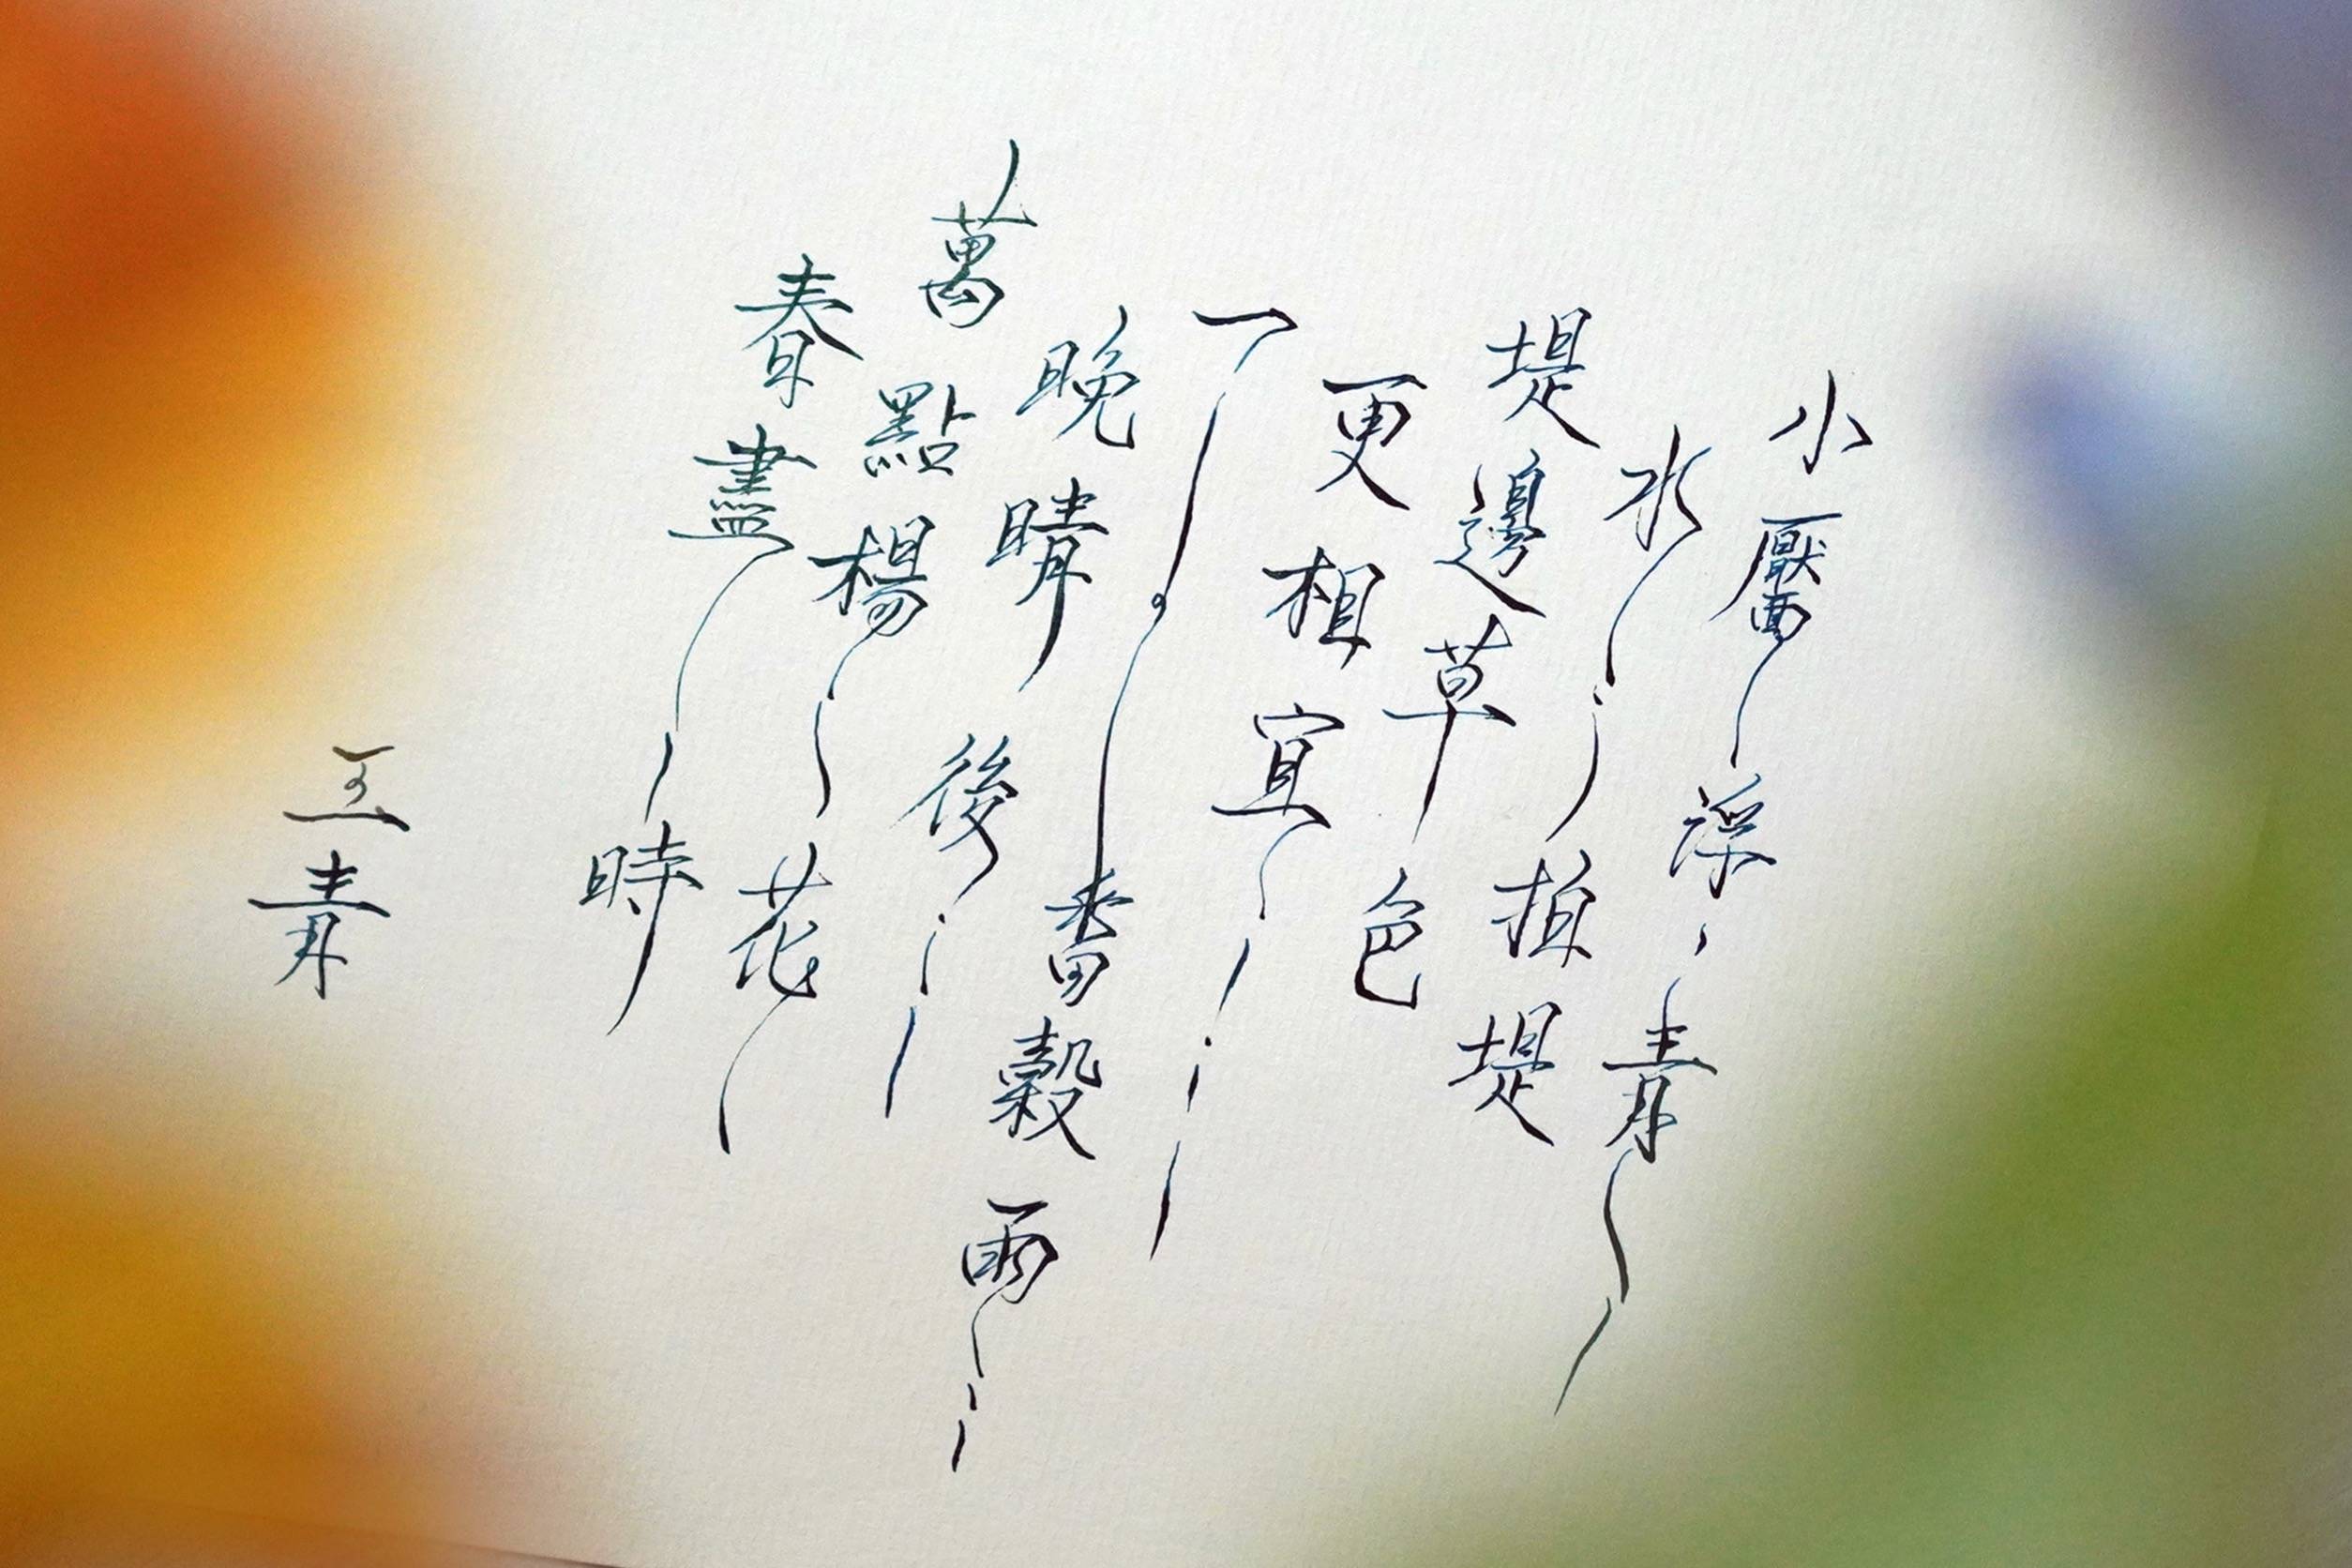 小靨浮青
水拍堤
堤邊草色
更相宜
一番穀雨
晚晴後
萬點楊花
春盡時
青